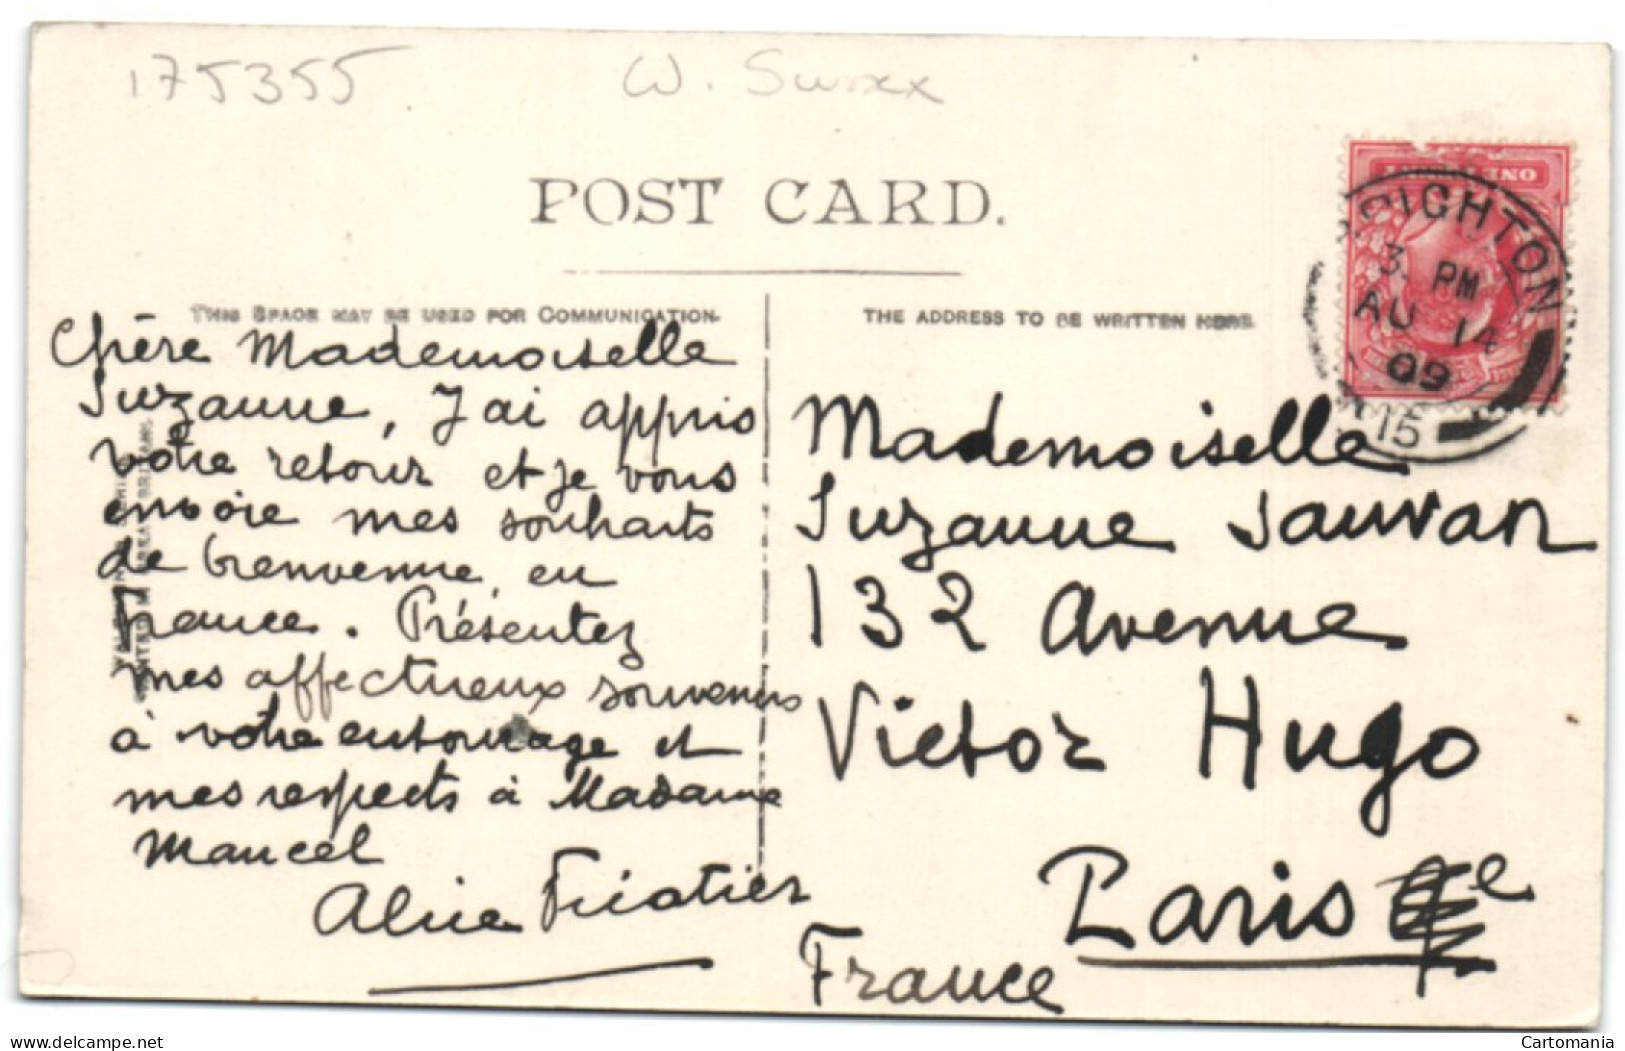 175355
W. Sussex
POST CARD.
THIS SPACE MAY BE USED FOR COMMUNICATION.
THE ADDRESS TO BE WRITTEN HERE.
BRIGHTON
3. PM
AU 14
09
15
Chère Mademoiselle
Suzanne, J'ai appris
votre retour et je vous
envoie mes souhaits
de bienvenue, en
France. Présentez
mes affectueux souvenirs
à votre entourage et
mes respects à Madame
Maucel
Alice
Mademoiselle
Suzanne Sauvan
132 Avenue
Victor Hugo
Paris
France
Cartomania